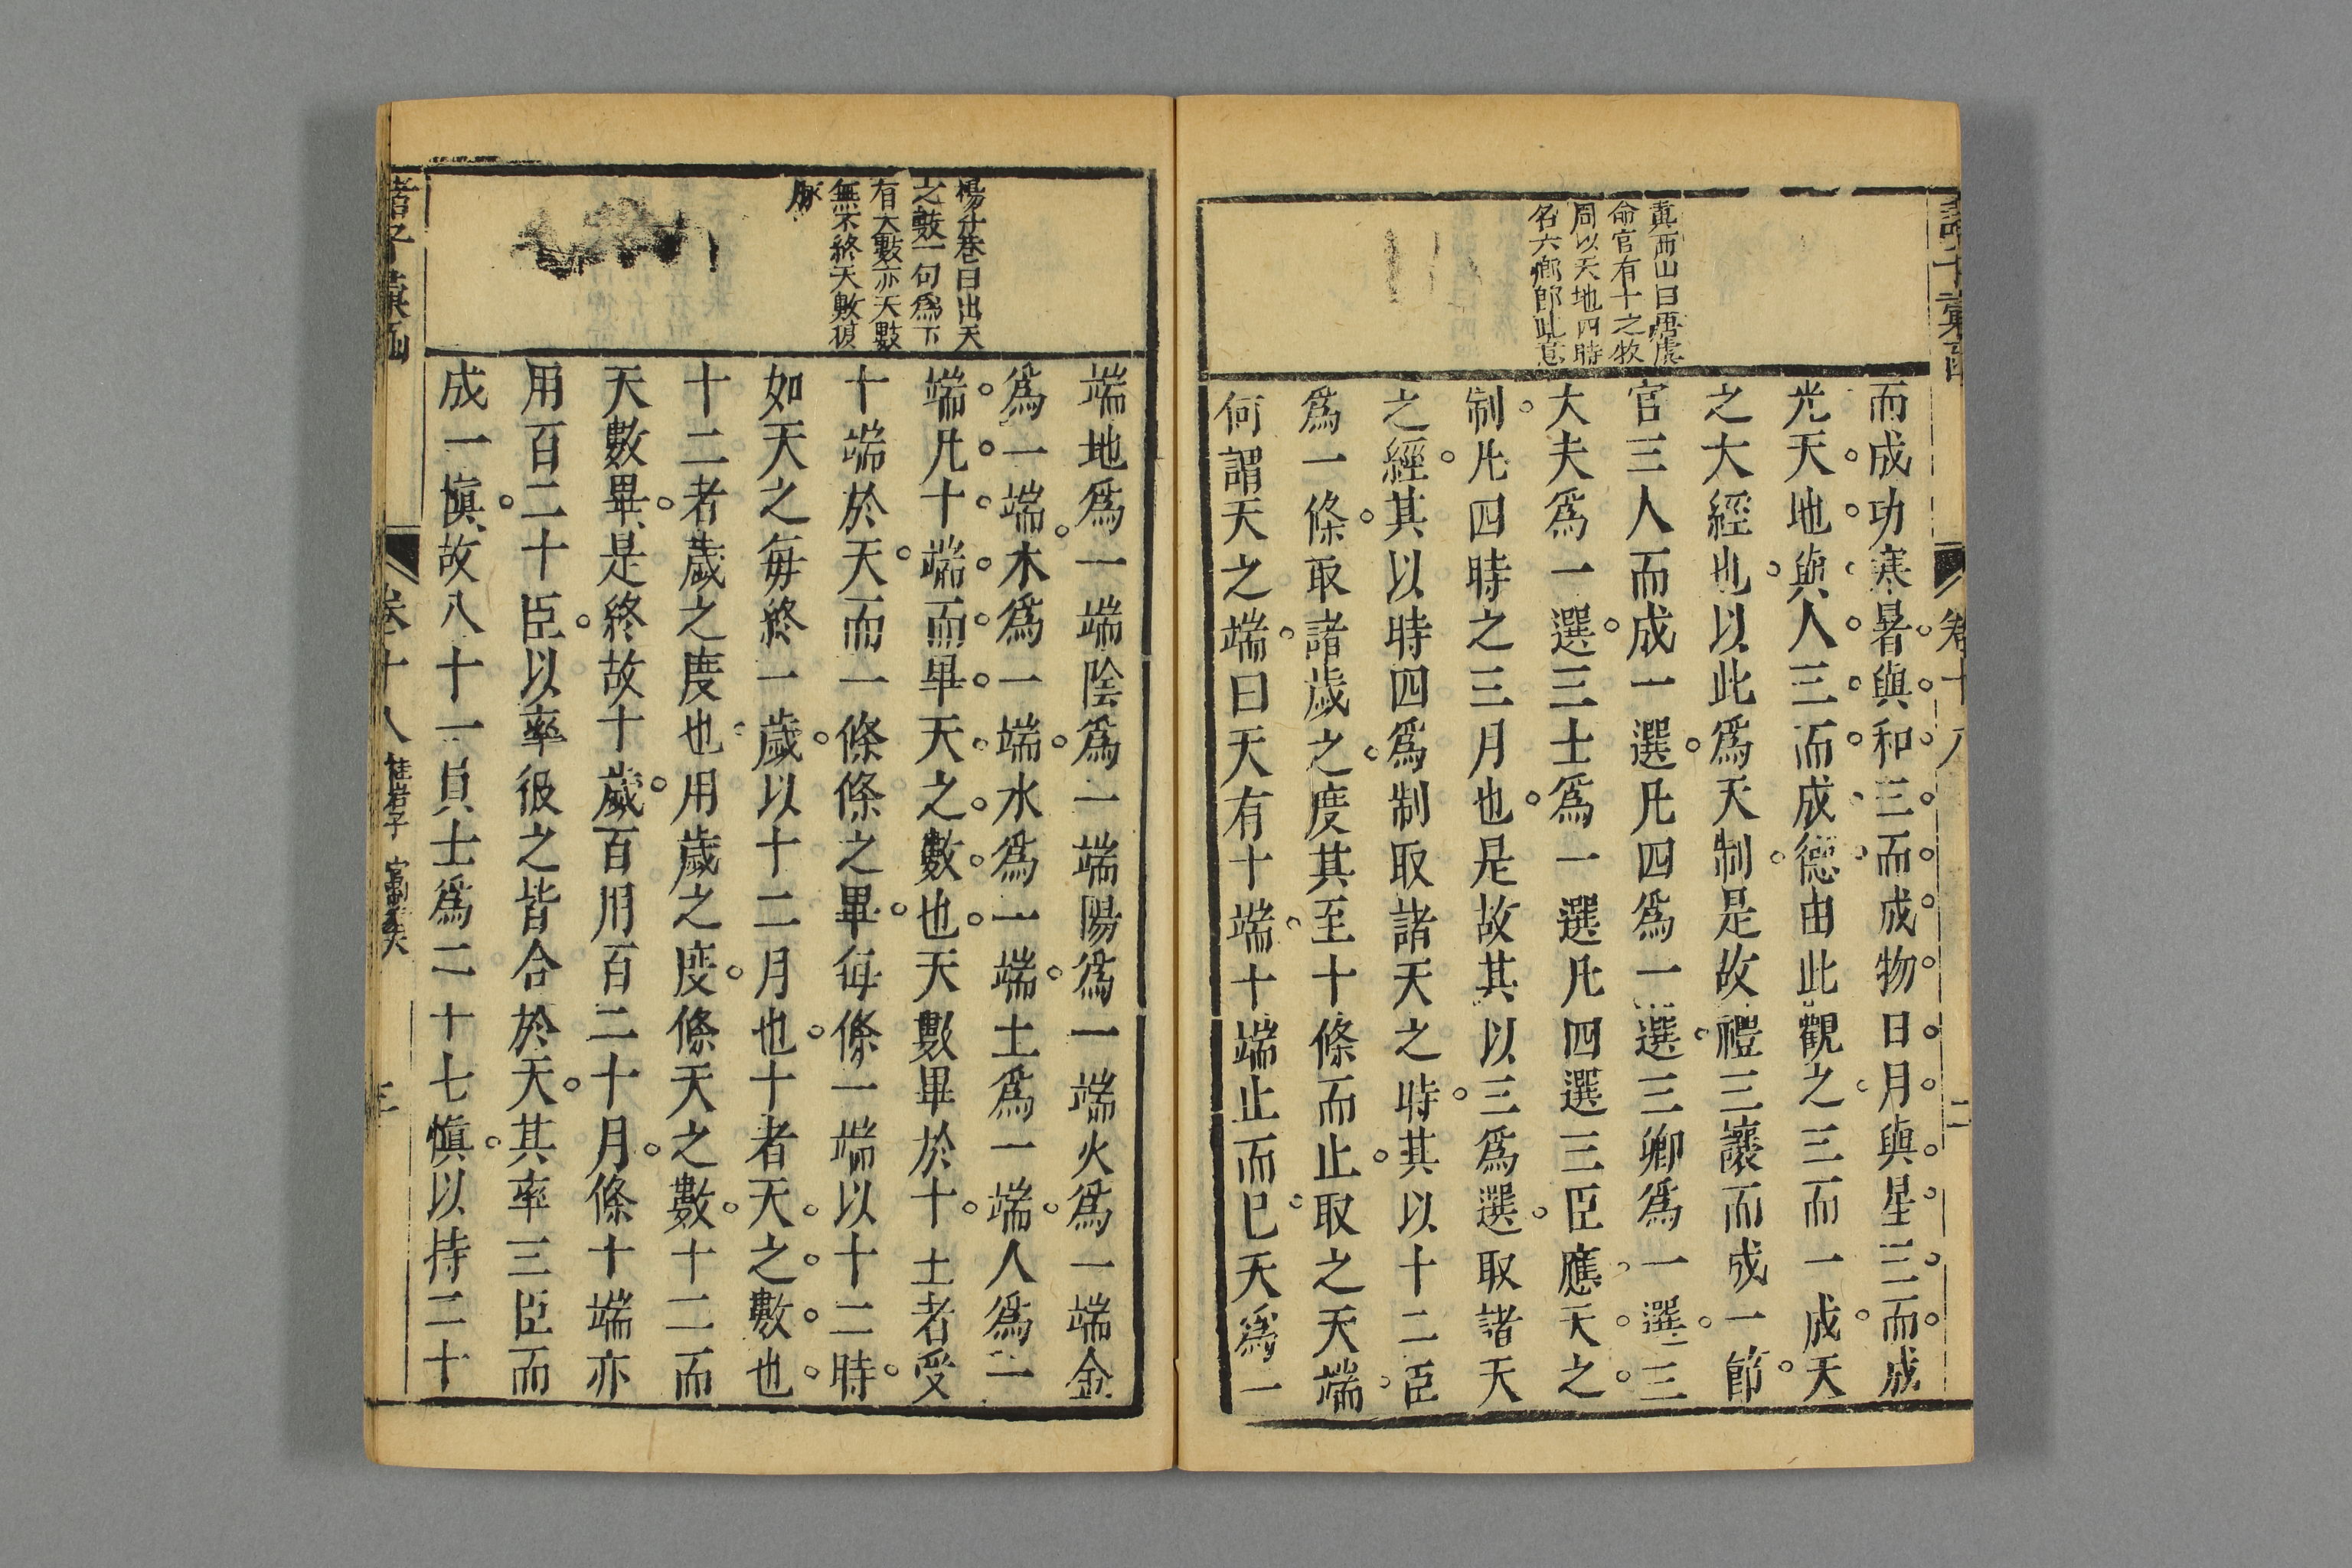 真西山曰唐虞
命官有十之牧
周以天地四時
名六卿郎此意
而成功寒暑與和三而成物日月與星三而成
光天地與人三而成德由此觀之三而一成天
之大經也以此爲天制是故禮三讓而成一節
官三人而成一選三公爲一選三卿爲一選三
大夫爲一選三士爲一選凡四選三臣應天之
制凡四時之三月也是故其以三爲選取諸天
之經其以時四爲制取諸天之時其以十二臣
爲一條取諸歲之度其至十條而止取之天端
何謂天之端曰天有十端十端止而已天爲一
卷十八
二
楊升巷曰出天
之數一句爲下
有大數亦天數
無不終天數
脉
端地爲一端陰爲一端陽爲一端火爲一端金
爲一端木爲一端水爲一端土爲一端人爲一
端凡十端而畢天之數也天數畢於十王者受
十端於天而一條條之畢每條一端以十二時
如天之每終一歲以十二月也十者天之數也
十二者歲之度也用歲之度條天之數十二而
天數畢是終故十歲百用百二十月條十端亦
用百二十臣以率彼之皆合於天其率三臣而
成一愼故八十一員士爲二十七愼以持二十
諸子彙函
卷十八 桂岩子
三